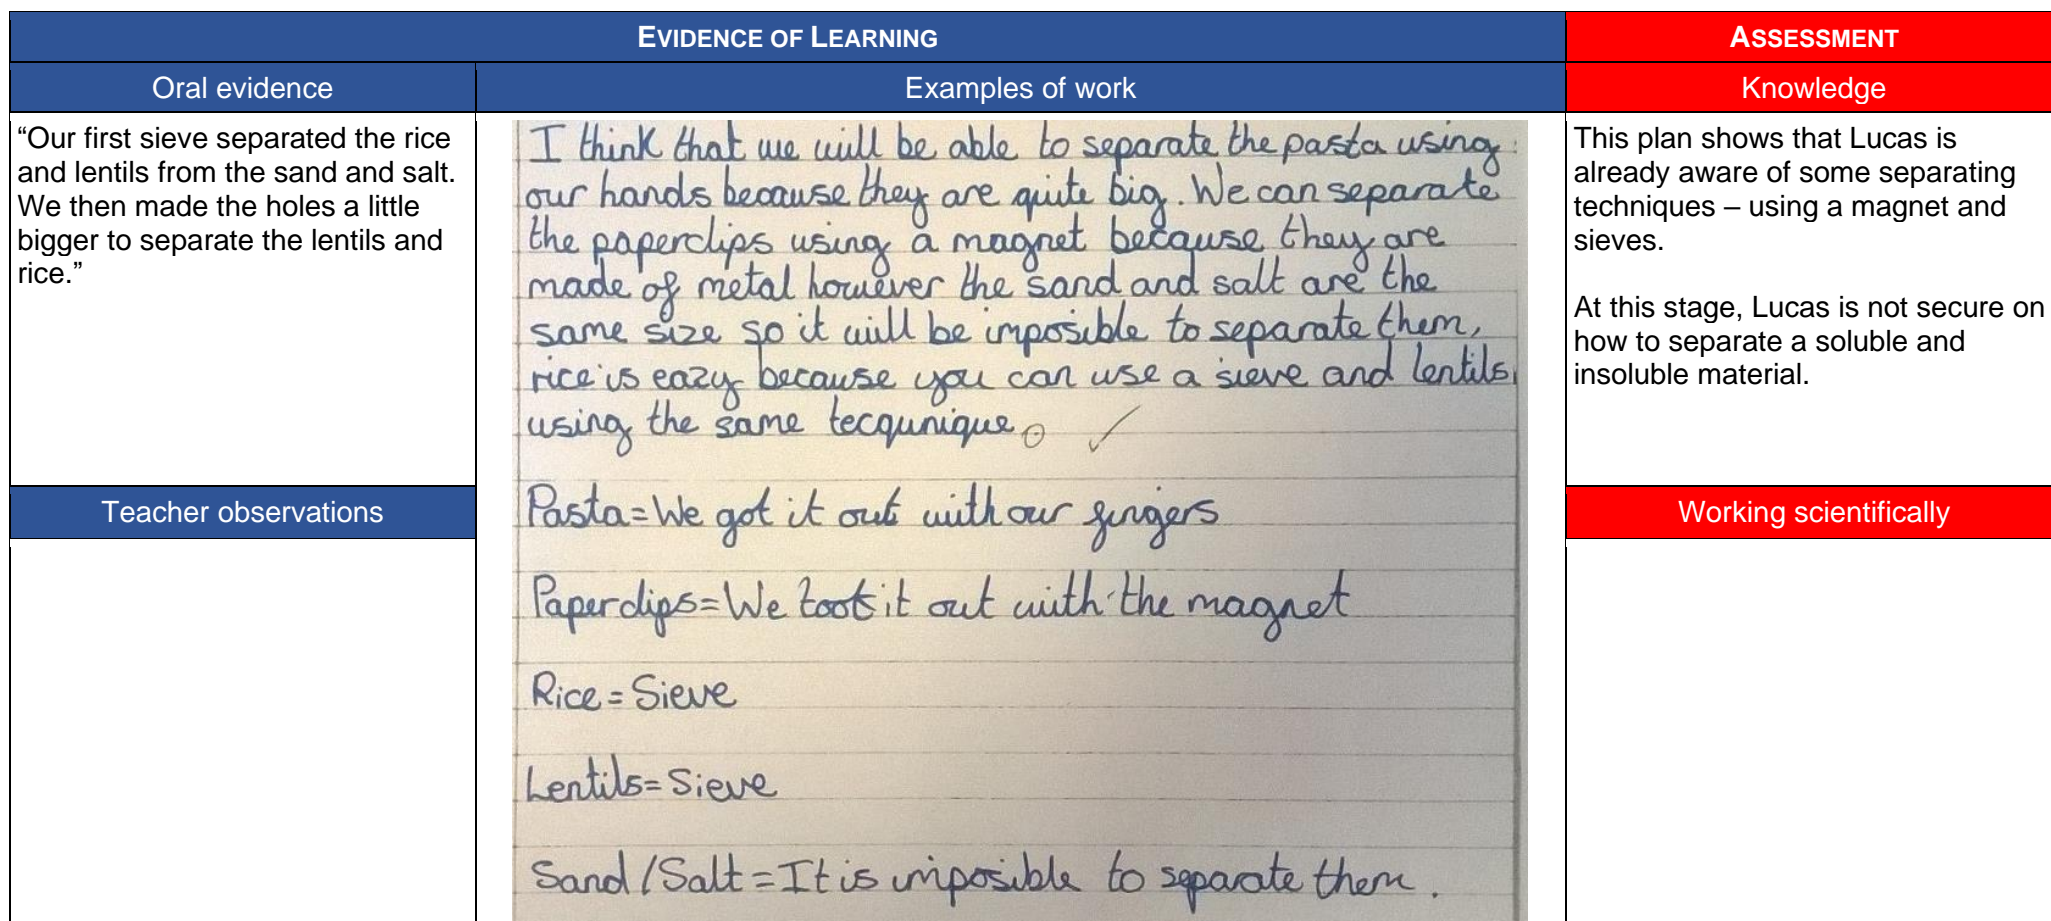 EVIDENCE OF LEARNING
ASSESSMENT
Oral evidence
Examples of work
Knowledge
“Our first sieve separated the rice
and lentils from the sand and salt.
We then made the holes a little
bigger to separate the lentils and
rice.”
Teacher observations
I think that we will be able to separate the pasta using
our hands because they are quite big. We can separate
the paperclips using a magnet because they are
made of metal however the sand and salt are the
same size so it will be imposible to separate them,
rice is eazy because you can use a sieve and lentils
using the same tecqunique.
Pasta=We got it out with our fingers
Paperclips=We took it out with the magnet
Rice=Sieve
Lentils=Sieve
Sand/Salt=It is imposible to separate them.
This plan shows that Lucas is
already aware of some separating
techniques – using a magnet and
sieves.
At this stage, Lucas is not secure on
how to separate a soluble and
insoluble material.
Working scientifically